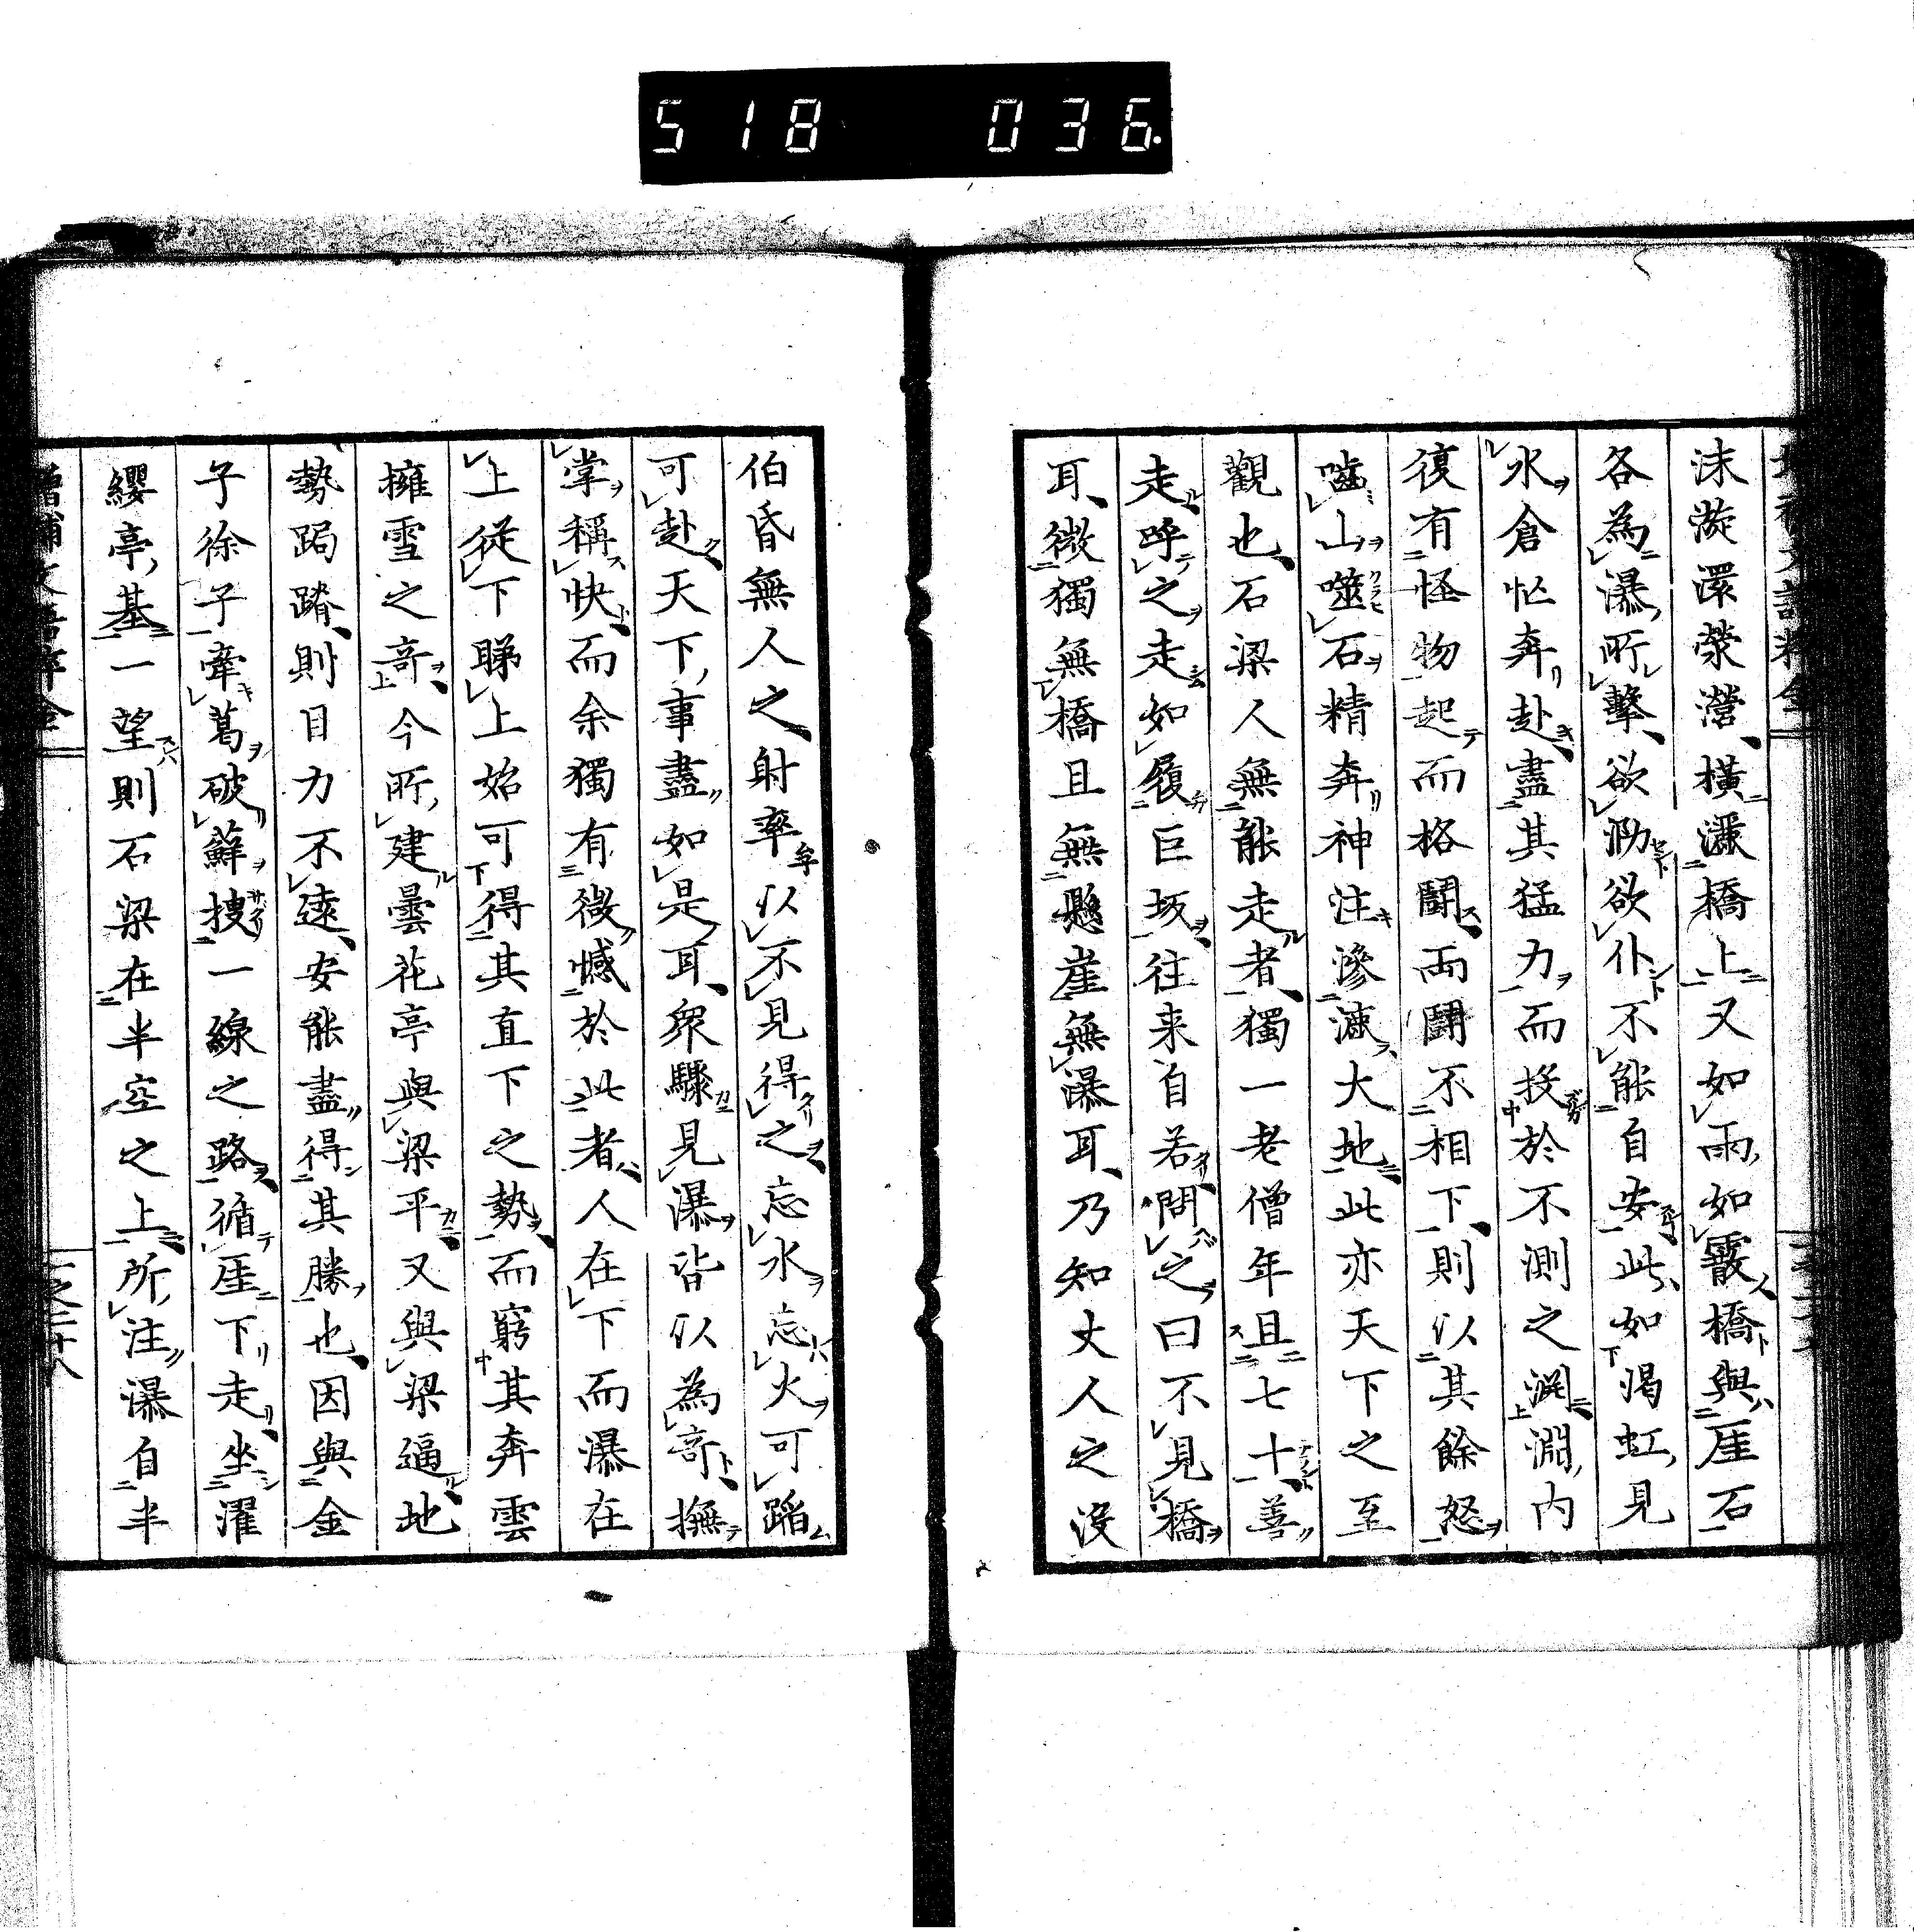 518 036
沫漩澴滎瀯橫瀑橋上又如雨如霰橋與厓石
各為瀑所擊欲泐欲仆不能自安此如渴虹見
水倉忙奔赴盡其猛力而投於不測之淵淵內
復有怪物起而格鬪兩鬪不相下則以其餘怒
嚙山噬石精奔神注滲漉大地此亦天下之至
觀也石梁人無能走者獨一老僧年且七十善
走呼之走如履巨坂往来自若問之曰不見橋
耳微獨無橋且無懸崖無瀑耳乃知丈人之沒
伯昏無人之射率以不見得之忘水忘火可蹈
可赴天下事盡如是耳衆驟見瀑皆以為奇撫
掌稱快而余獨有微憾於此者人在下而瀑在
上從下睇上始可得其直下之勢而窮其奔雲
擁雪之奇今所建曇花亭與梁平又與梁逼地
勢跼蹐則目力不遠安能盡得其勝也因與金
子徐子牽葛破蘚捜一線之路循厓下走坐濯
纓亭基一望則石梁在半空之上所注瀑自半